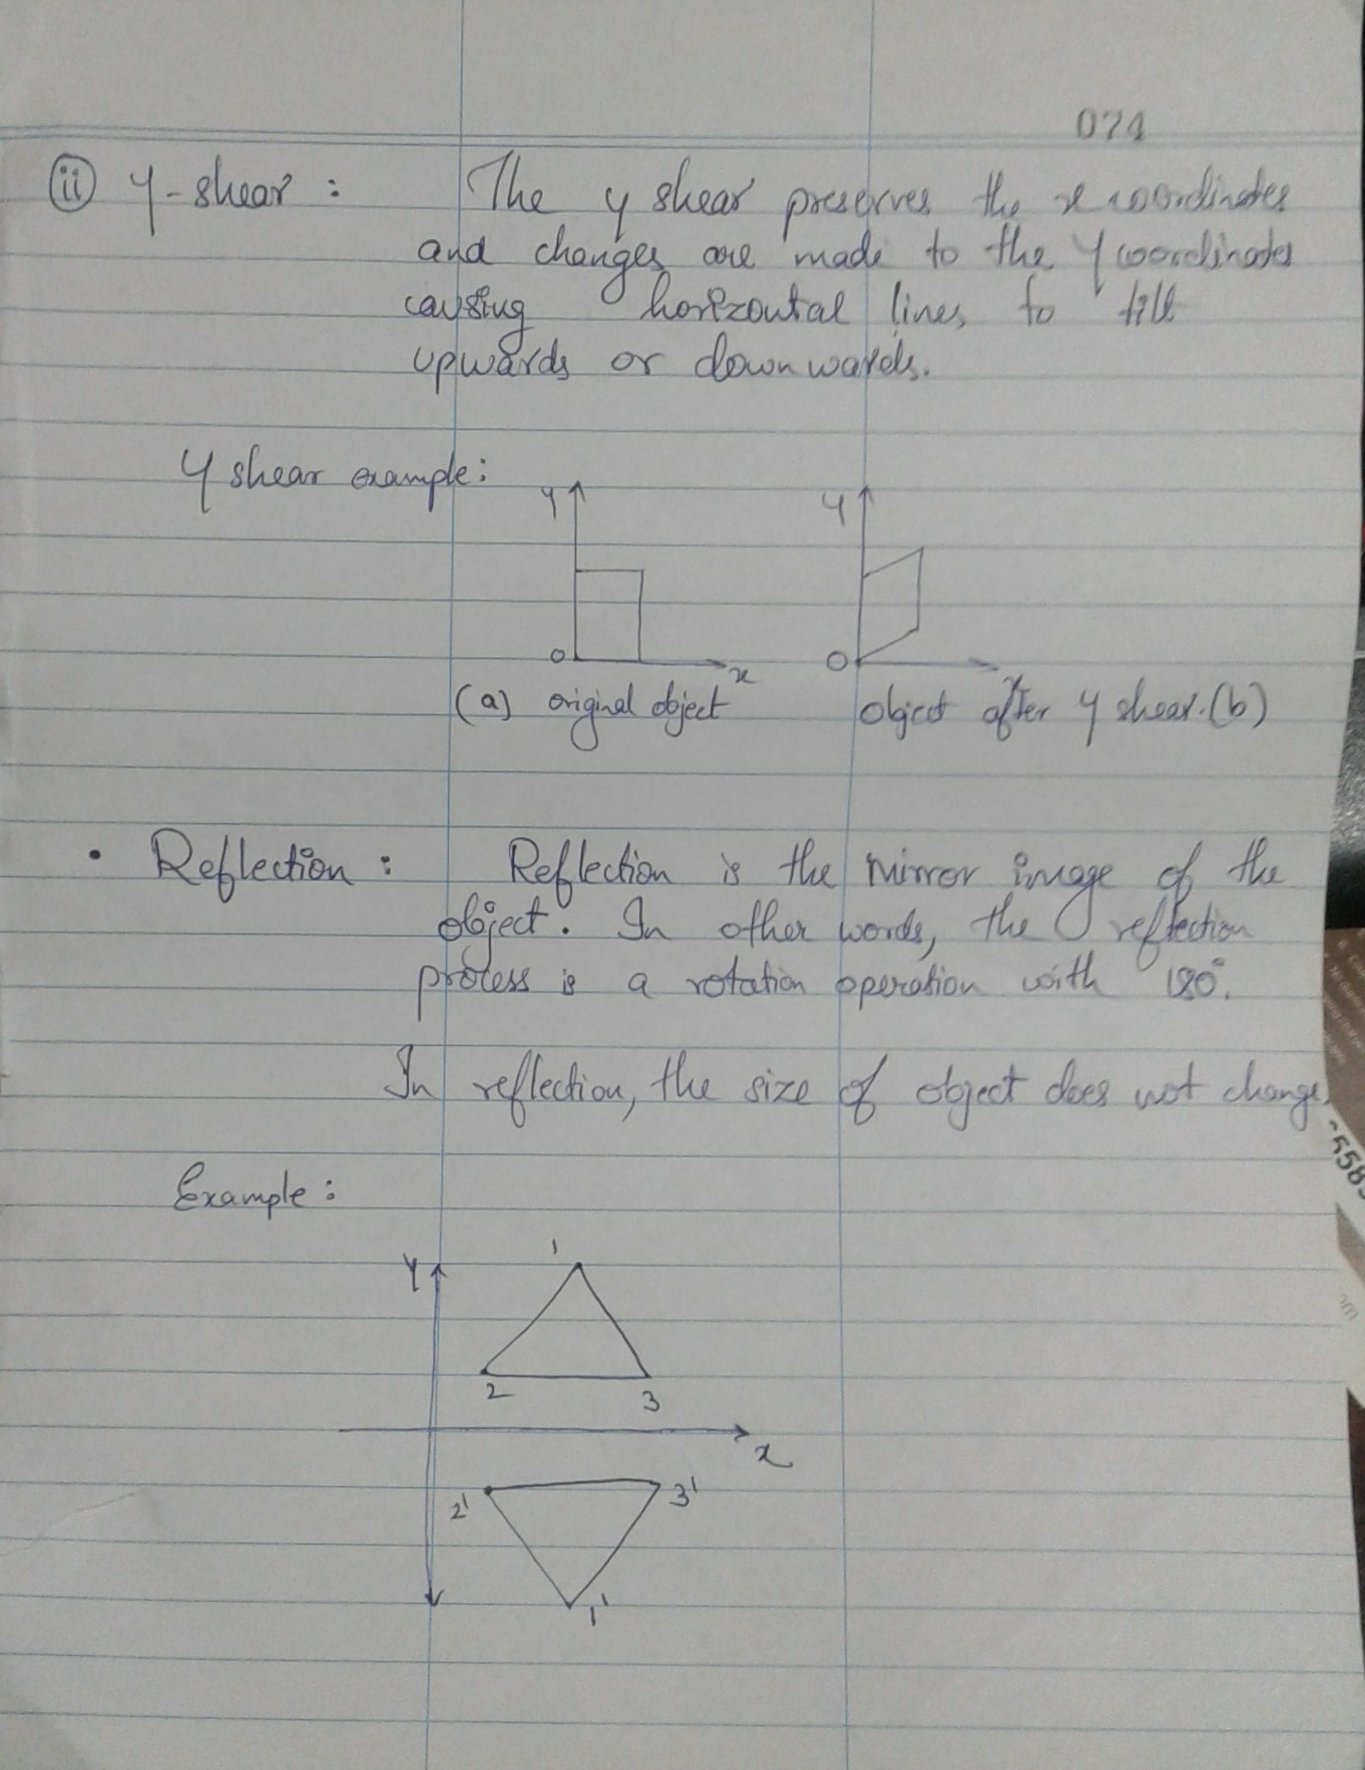 074
(ii) Y-shear : The y shear preserves the x coordinates
and changes are made to the Y coordinates
causing horizontal lines to till
upwards or downwards.
Y shear example:
Y Y
O x O x
(a) original object object after Y shear. (b)
• Reflection : Reflection is the mirror image of the
object. In other words, the reflection
process is a rotation operation with 180°.
In reflection, the size of object does not change.
Example :
Y 1
2 3
x
2' 3'
1'
5585